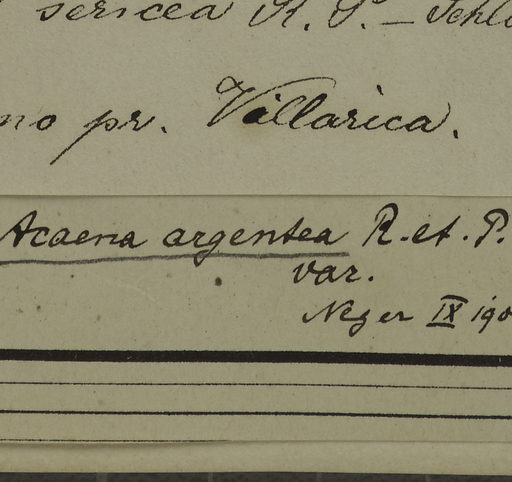 sericea R. P. – Schl
no pr. Villarica.
Acaena argentea R. et. P.
var.
Neger IX 190